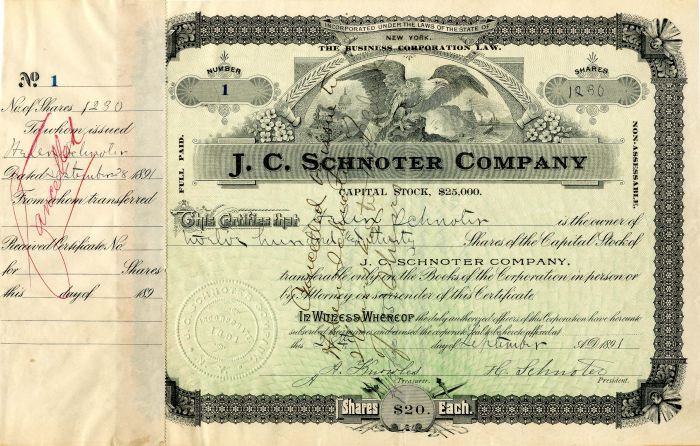 No 1
No. of Shares 1280
To whom issued
Dated September 28 1891
From whom transferred
Cancelled
Received Certificate No.
for Shares
this day of 189
INCORPORATED UNDER THE LAWS OF THE STATE OF
NEW YORK.
THE BUSINESS CORPORATION LAW.
NUMBER
1
SHARES
1280
FULL PAID.
NON-ASSESSABLE.
J. C. SCHNOTER COMPANY
CAPITAL STOCK, $25,000.
This Certifies that Schnoter is the owner of
Twelve hundred Shares of the Capital Stock of
J. C. SCHNOTER COMPANY,
transferable only on the Books of the Corporation in person or
by Attorney on surrender of this Certificate.
IN WITNESS WHEREOF the duly authorized officers of this Corporation have hereunto
subscribed their names and caused the corporate Seal to be hereto affixed at
this day of September A.D. 1891
J. A. Knowles H. Schnoter
Treasurer. President.
Shares $20. Each.